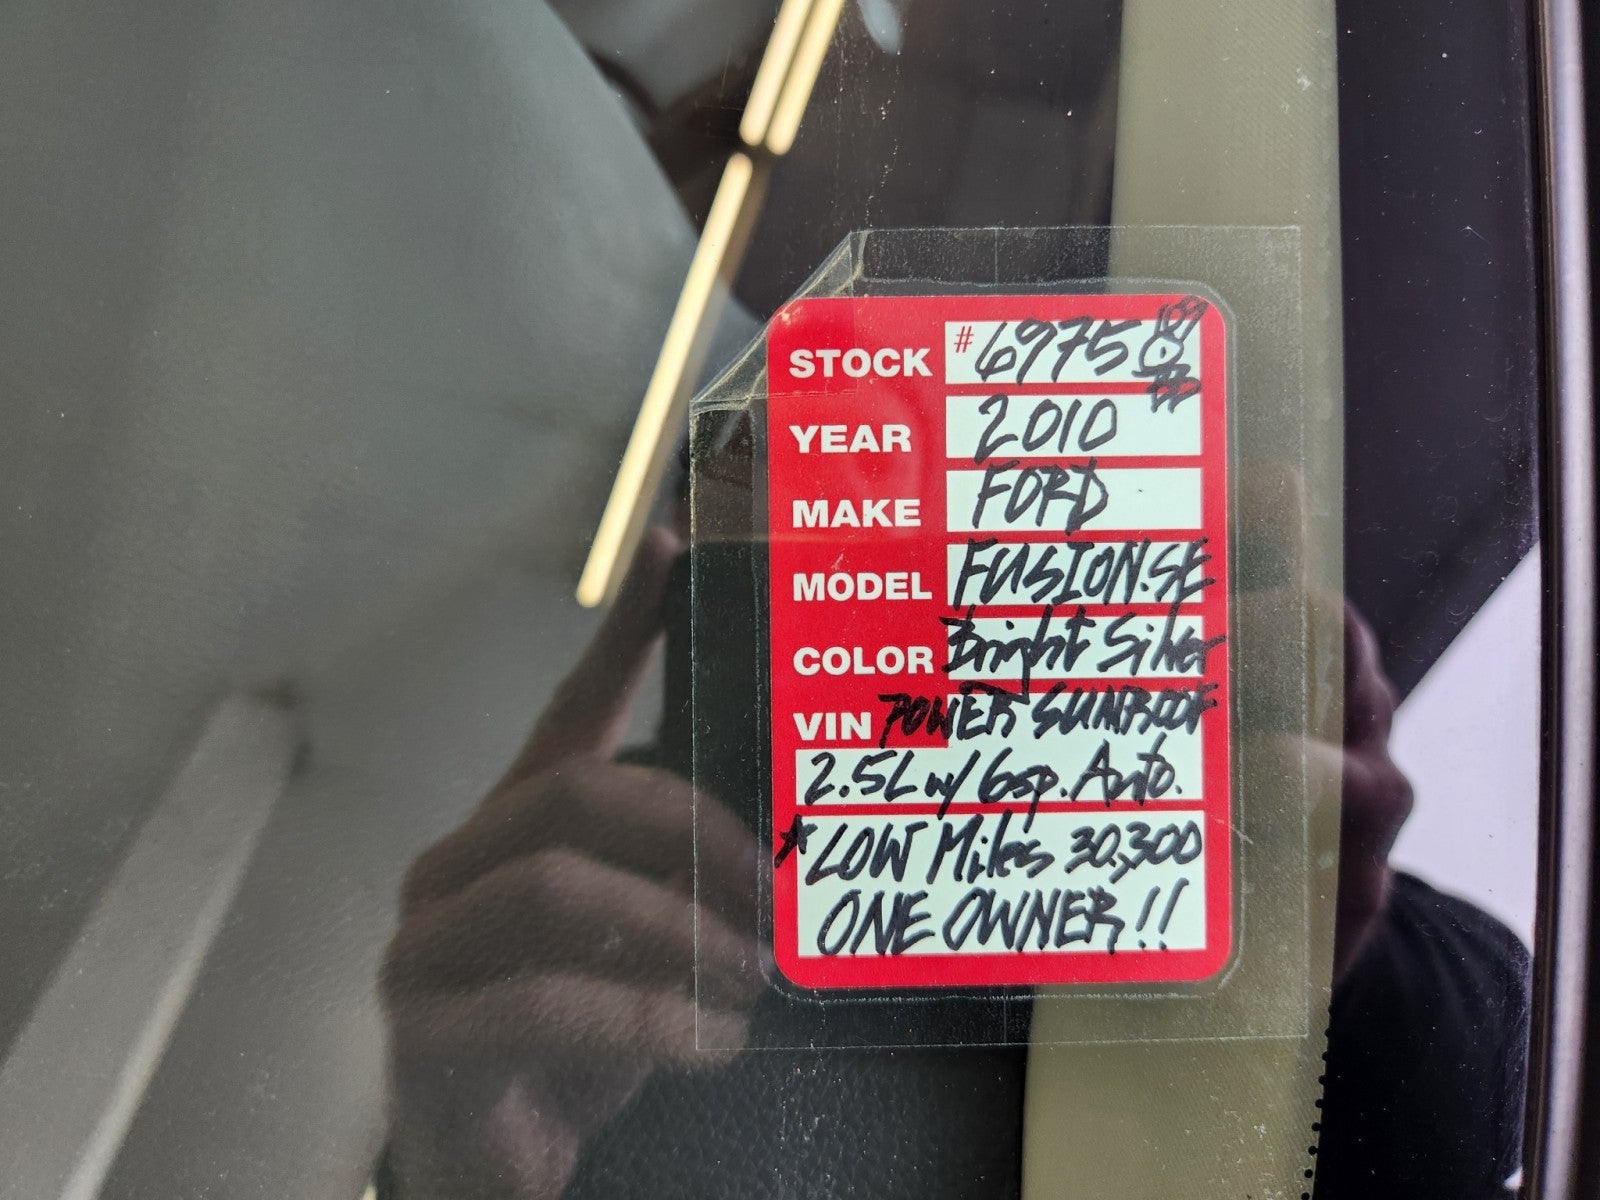 STOCK #6975
YEAR 2010
MAKE FORD
MODEL FUSION.SE
COLOR Bright Silver
VIN POWER SUNROOF
2.5L w/ 6sp. Auto.
*LOW Miles 30,300
ONE OWNER!!